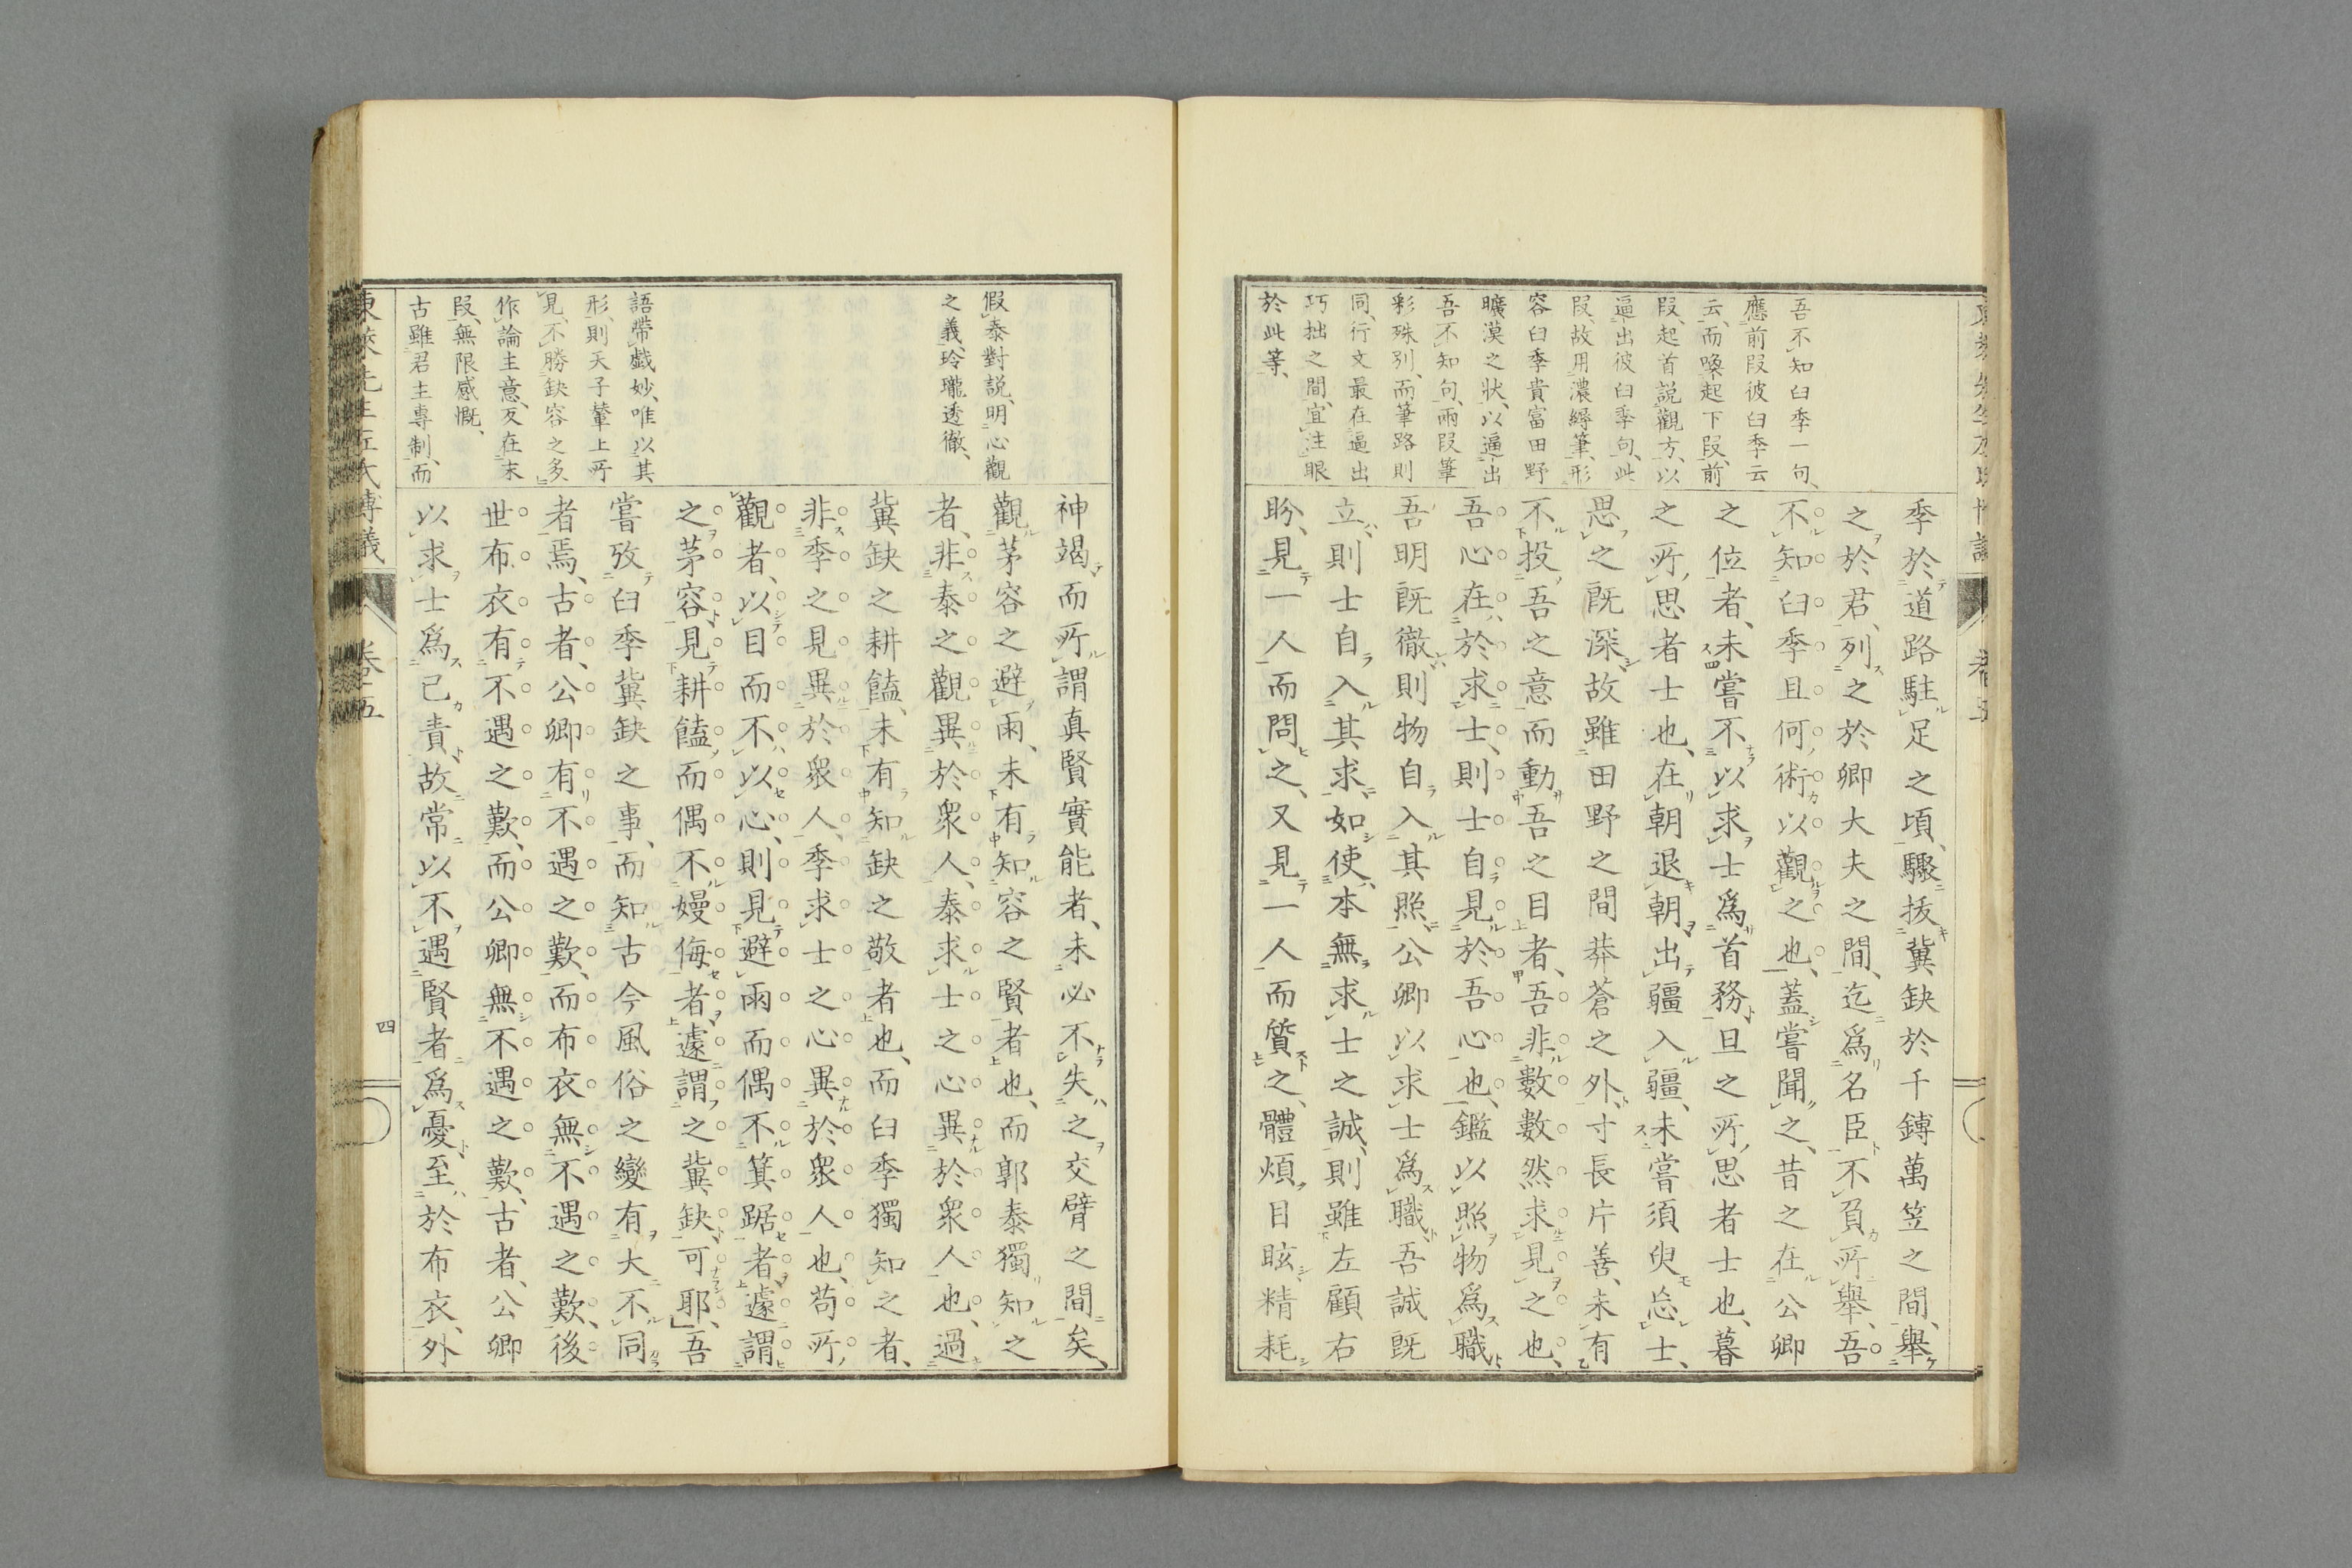 吾不知臼季一句、
應前段彼臼季云
云、而喚起下段、前
段、起首説觀方、以
逼出彼臼季句、此
段、故用濃縟筆、形
容臼季貴富田野
曠漠之狀、以逼出
吾不知句、兩段筆
彩殊別、而筆路則
同、行文最在逼出
巧拙之間、宜注眼
於此等、
季於道路駐足之頃、驟拔冀缺於千鎛萬笠之間、舉
之於君、列之於卿大夫之間、迄爲名臣、不負所舉、吾
不知臼季且何術以觀之也、蓋嘗聞之、昔之在公卿
之位者、未嘗不以求士爲首務、旦之所思者士也、暮
之所思者士也、在朝退朝、出疆入疆、未嘗須臾忘士、
思之既深、故雖田野之間、莽蒼之外、寸長片善、未有
不投吾之意而動吾之目者、吾非數數然求見之也、
吾心在於求士、則士自見於吾心也、鑑以照物爲職、
吾明既徹、則物自入其照、公卿以求士爲職、吾誠既
立、則士自入其求、如使本無求士之誠、則雖左顧右
盻、見一人而問之、又見一人而質之、體煩目眩、精耗
假泰對説、明心觀
之義、玲瓏透徹、
語帶戲妙、唯以其
形、則天子輦上所
見、不勝缺容之多、
作論主意、反在末
段、無限感慨、
古雖君主專制、而
神竭而所謂真賢實能者、未必不失之交臂之間矣、
觀茅容之避雨、未有知容之賢者也、而郭泰獨知之
者、非泰之觀異於衆人、泰求士之心異於衆人也、過
冀缺之耕饁、未有知缺之敬者也、而臼季獨知之者、
非季之見異於衆人、季求士之心異於衆人也、苟所
觀者、以目而不以心、則見避雨而偶不箕踞者、遽謂
之茅容、見耕饁而偶不嫚侮者、遽謂之冀缺、可耶、吾
嘗攷臼季冀缺之事、而知古今風俗之變有大不同
者焉、古者、公卿有不遇之歎、而布衣無不遇之歎、後
世布衣有不遇之歎、而公卿無不遇之歎、古者、公卿
以求士爲己責、故常以不遇賢者爲憂、至於布衣、外
東萊先生左氏博議 卷五
四